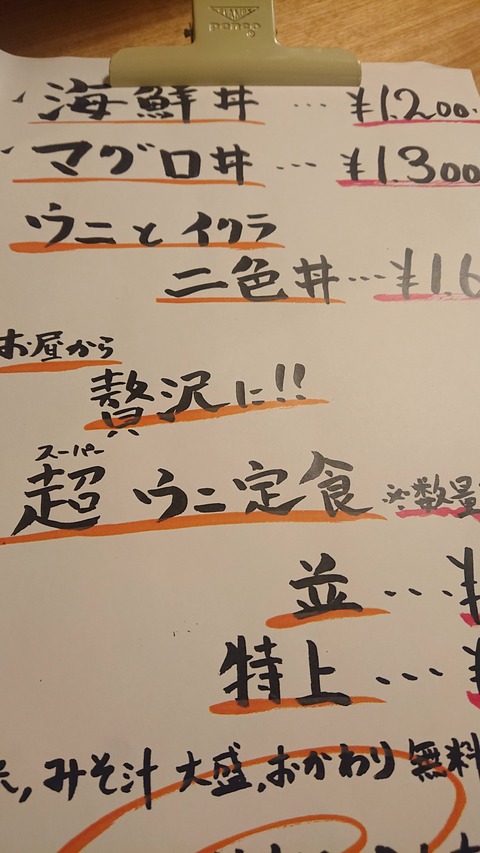 penco
海鮮丼 … ¥1.200.
マグロ丼 … ¥1.300
ウニとイクラ
二色丼…¥1.6
お昼から
贅沢に!!
スーパー
超 ウニ定食 ※数量
並…¥
特上…¥
みそ汁 大盛、おかわり無料